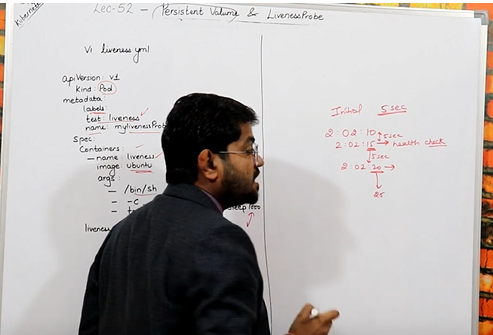 Kubernetes
Lec-52 - Persistent Volume & LivenessProbe
Vi liveness yml
apiVersion: v1
kind: Pod
metadata:
labels:
test: liveness
name: mylivenessProb
spec:
Containers:
- name: liveness
image: Ubuntu
args:
- /bin/sh
- -c
- sleep 1000
liveness
Initial 5sec
2:02:10
5sec
2:02:15 → health check
5sec
2:02:20 →
25